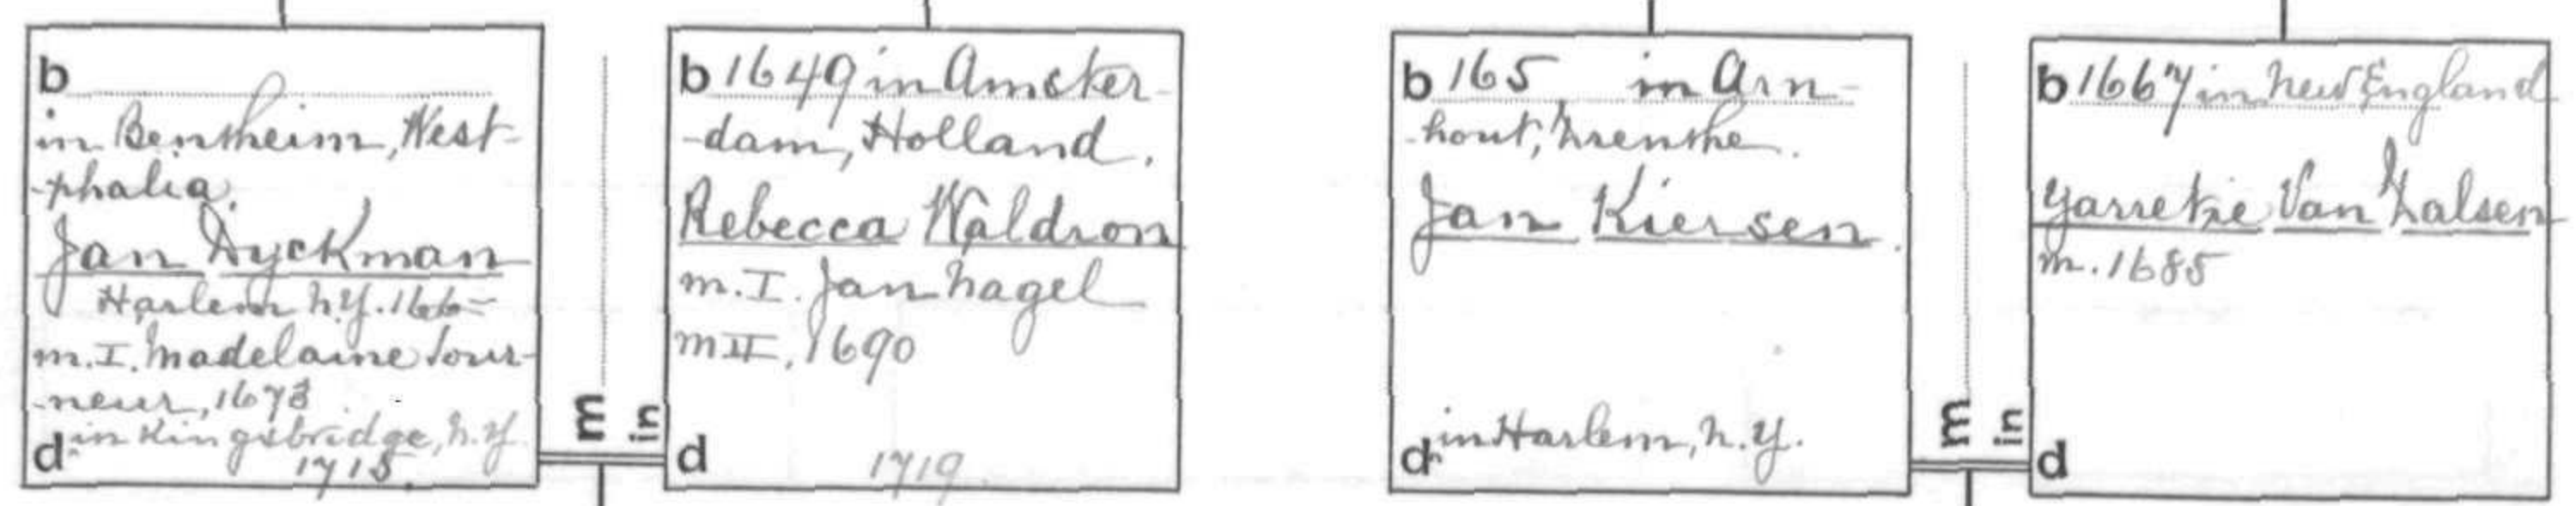 b
in Bentheim, West-
-phalia.
Jan Dyckman
Harlem N.Y. 166-
m. I. Madelaine Tour-
-neur, 1673
d in Kingsbridge, N.Y.
1715.
m
in
b 1649 in Amster-
-dam, Holland.
Rebecca Waldron
m. I. Jan Nagel
m II, 1690
d 1719
b 165 in Arn-
-hout, Drenthe.
Jan Kiersen.
d in Harlem, N.Y.
m
in
b 1667 in New England
Garretje Van Dalsen
m. 1685
d